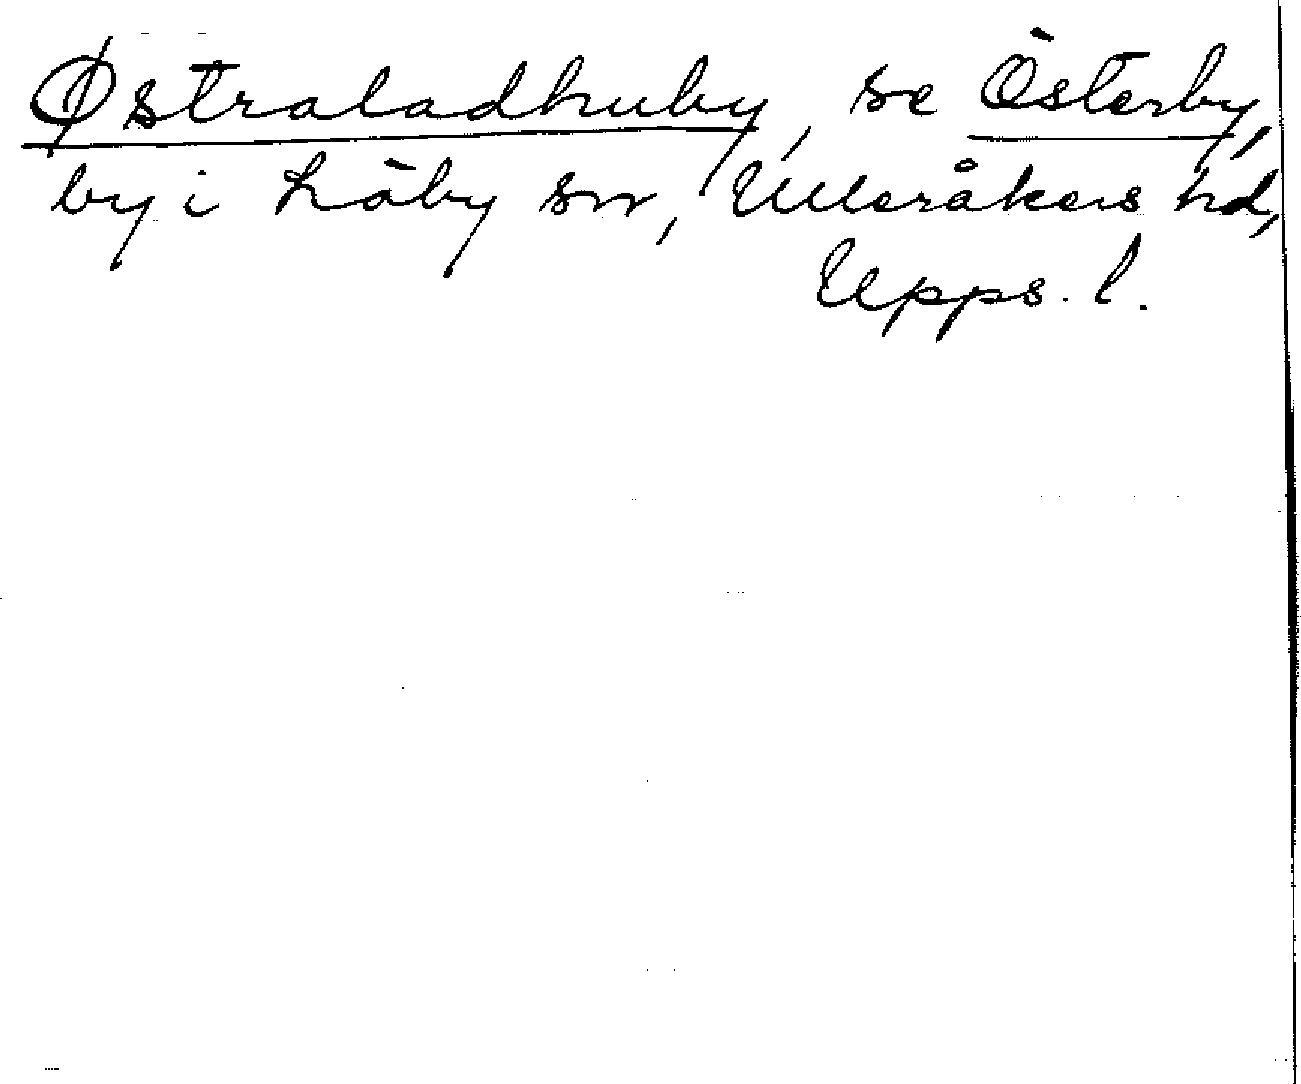 Østraladhuby, se Österby,
by i Läby sn, Ulleråkers hd,
Upps. l.